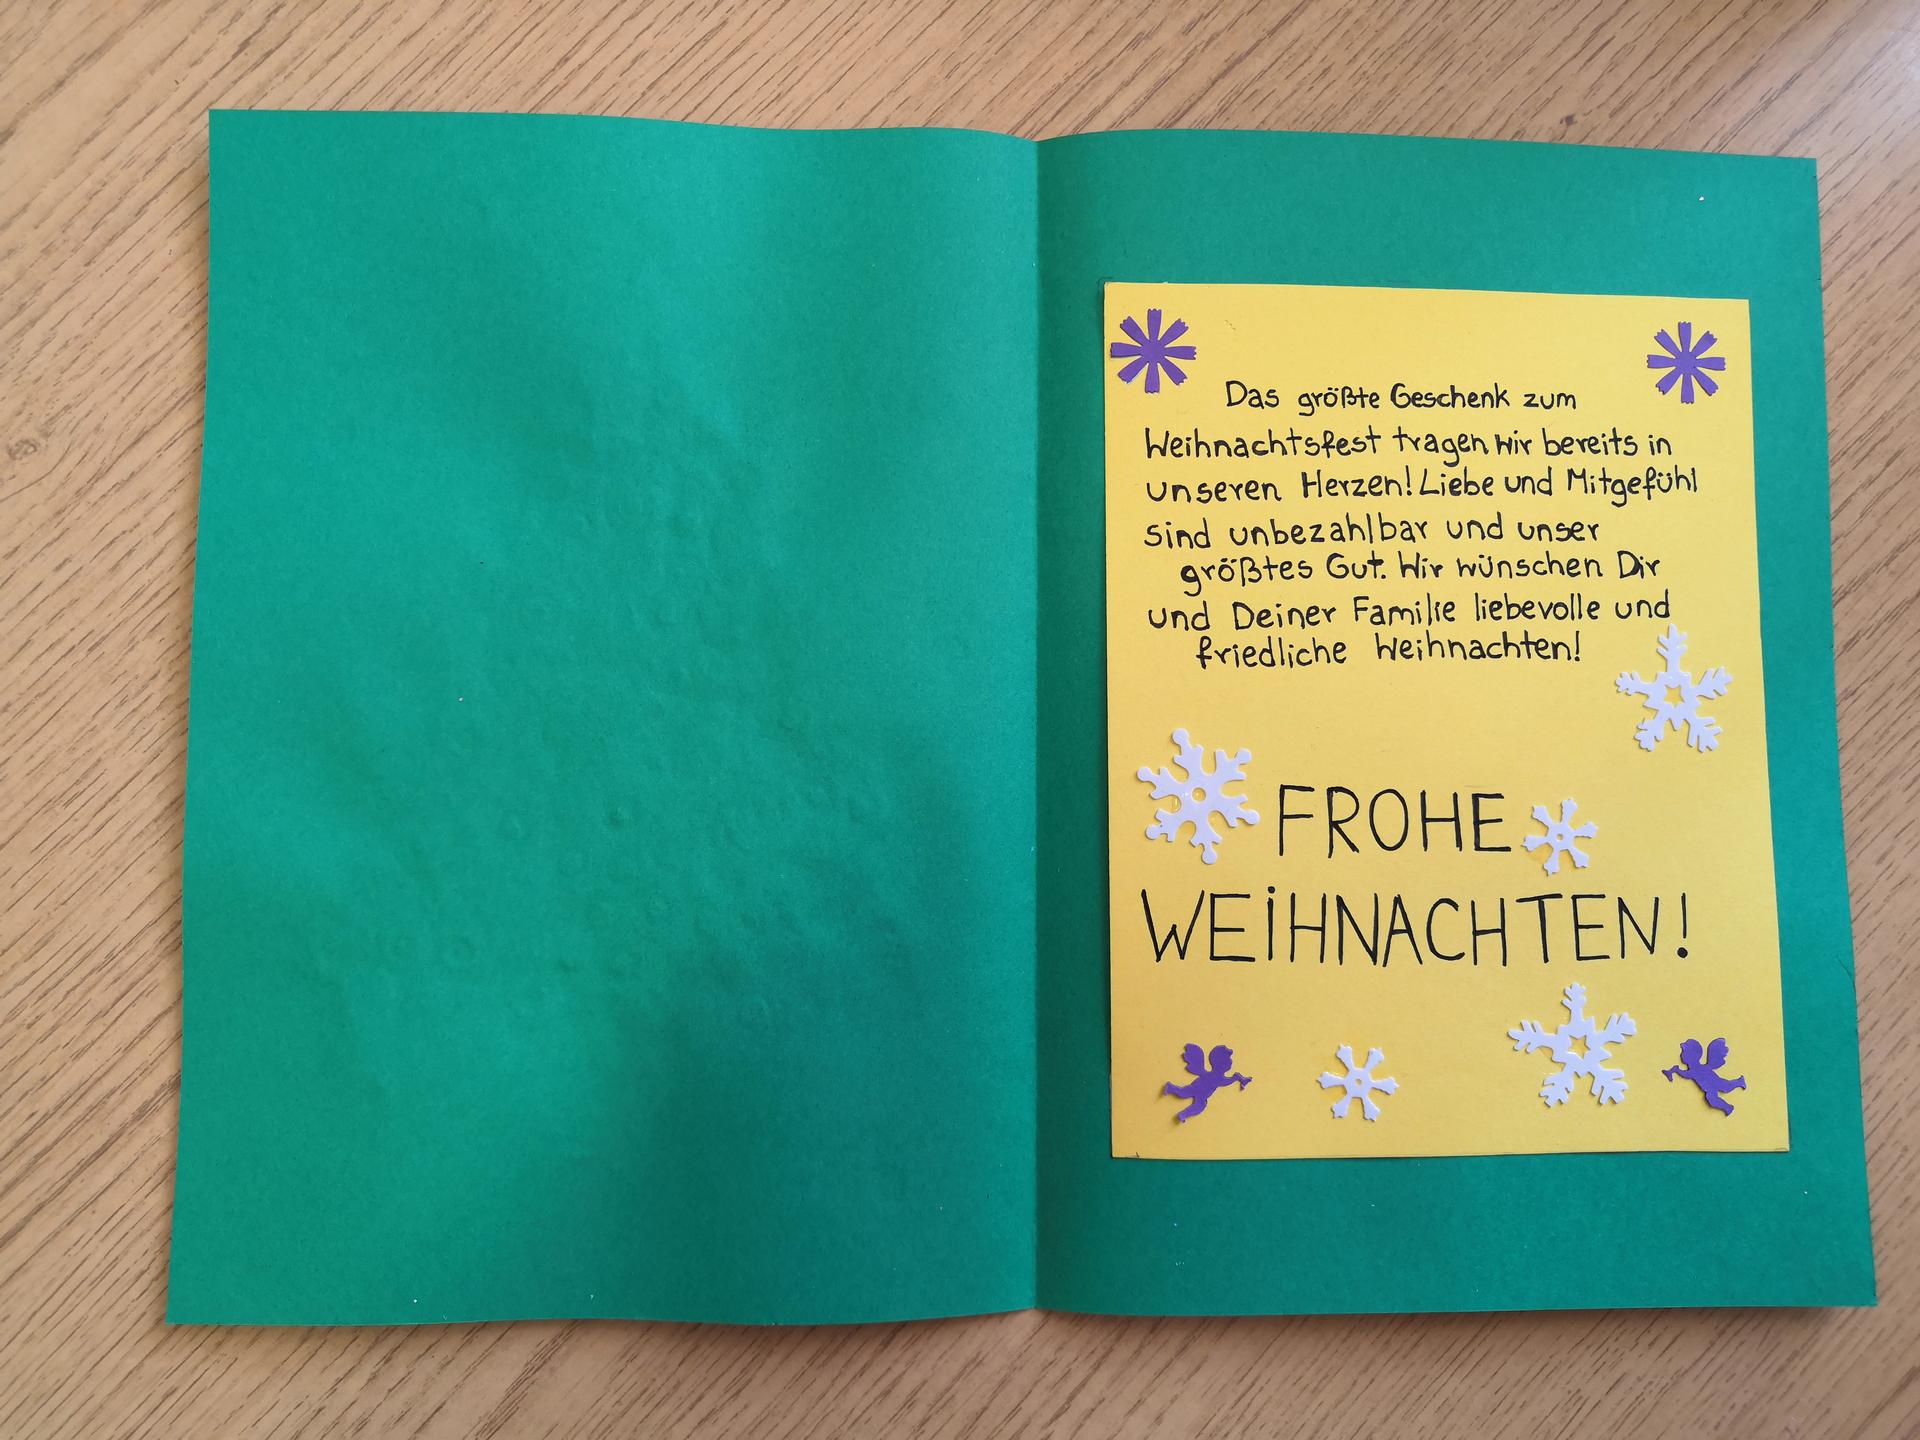 Das größte Geschenk zum
Weihnachtsfest tragen wir bereits in
unseren Herzen! Liebe und Mitgefühl
sind unbezahlbar und unser
größtes Gut. Wir wünschen Dir
und Deiner Familie liebevolle und
friedliche Weihnachten!
FROHE
WEiHNACHTEN!